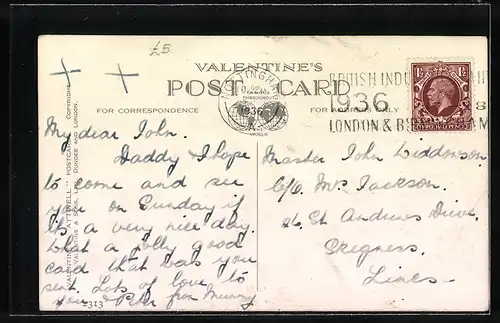 £5
VALENTINE'S
POST CARD
FOR CORRESPONDENCE
FOR ADDRESS ONLY
FAMOUS
THROUGHOUT
THE
WORLD
NOTTINGHAM
1936
BRITISH INDU
1936
LONDON & B
1½
1½
My dear John.
Daddy & I hope
to come and see
you on Sunday if
its a very nice day.
What a jolly good
card that was you
sent. Lots of love to
you & Peter from Mummy
Master John Liddowson
C/o Mrs Jackson.
St Andrews Drive,
Skegness.
Lincs
"ATTWELL" POSTCARD
VALENTINE & SONS, LTD. DUNDEE AND LONDON.
COPYRIGHT
2313